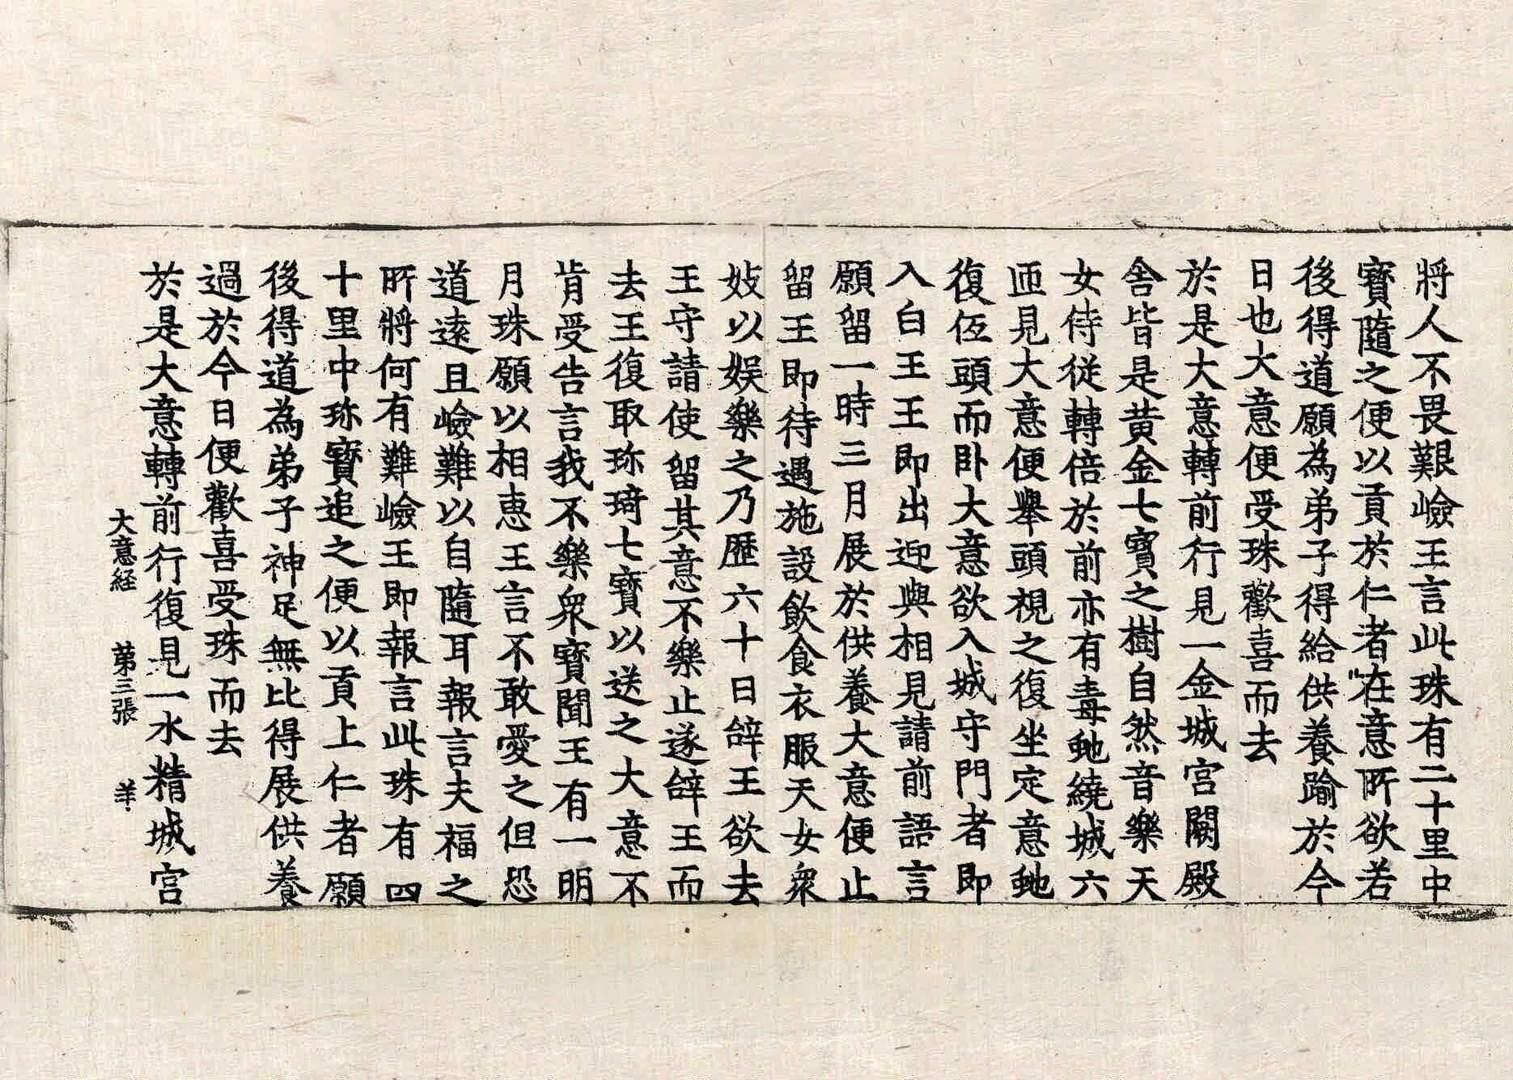 將人不畏艱嶮王言此珠有二十里中
寶隨之便以貢於仁者在意所欲若
後得道願為弟子得給供養踰於今
日也大意便受珠歡喜而去
於是大意轉前行見一金城宮闕殿
舍皆是黃金七寶之樹自然音樂天
女侍從轉倍於前亦有毒虵繞城六
匝見大意便舉頭視之復坐定意虵
復低頭而卧大意欲入城守門者即
入白王王即出迎與相見請前語言
願留一時三月展於供養大意便止
留王即待遇施設飲食衣服天女衆
妓以娛樂之乃歷六十日辝王欲去
王守請使留其意不樂止遂辝王而
去王復取珎琦七寶以送之大意不
肯受告言我不樂衆寶聞王有一明
月珠願以相惠王言不敢愛之但恐
道遠且嶮難以自隨耳報言夫福之
所將何有難嶮王即報言此珠有四
十里中珎寶追之便以貢上仁者願
後得道為弟子神足無比得展供養
過於今日便歡喜受珠而去
於是大意轉前行復見一水精城宮
大意経　第三張　羊